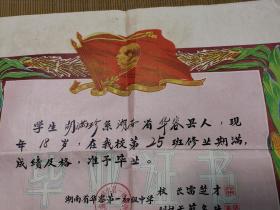 学生 胡湘玲 系湖南省华容县人，现
年18岁，在我校第25班修业期满，
成绩及格，准予毕业。
毕业证书
湖南省华容第一初级中学
校长 雷楚才